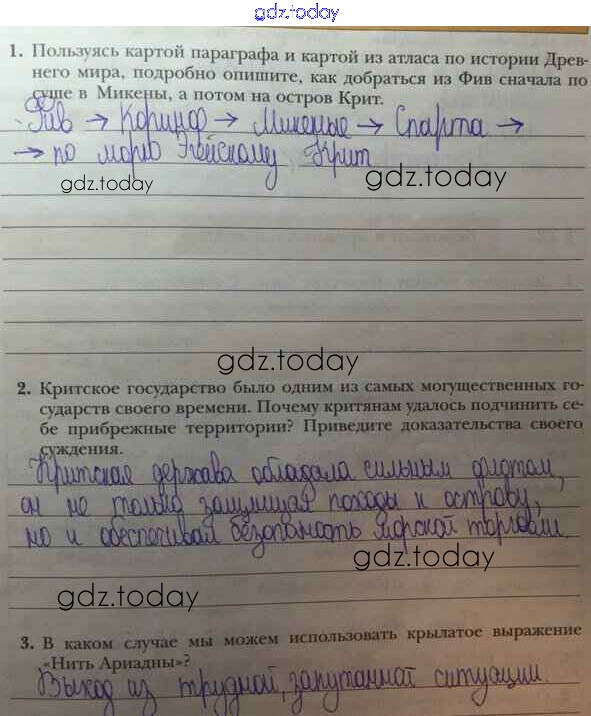 gdz.today
1. Пользуясь картой параграфа и картой из атласа по истории Древ-
него мира, подробно опишите, как добраться из Фив сначала по
суше в Микены, а потом на остров Крит.
Фив → Коринф → Микены → Спарта →
→ по морю Эгейскому Крит
gdz.today gdz.today
gdz.today
2. Критское государство было одним из самых могущественных го-
сударств своего времени. Почему критянам удалось подчинить се-
бе прибрежные территории? Приведите доказательства своего
суждения.
Критская держава обладала сильным флотом,
он не только защищал походы к острову,
но и обеспечивал безопасность морской торговли
gdz.today
gdz.today
3. В каком случае мы можем использовать крылатое выражение
«Нить Ариадны»?
Выход из трудной, запутанной ситуации.